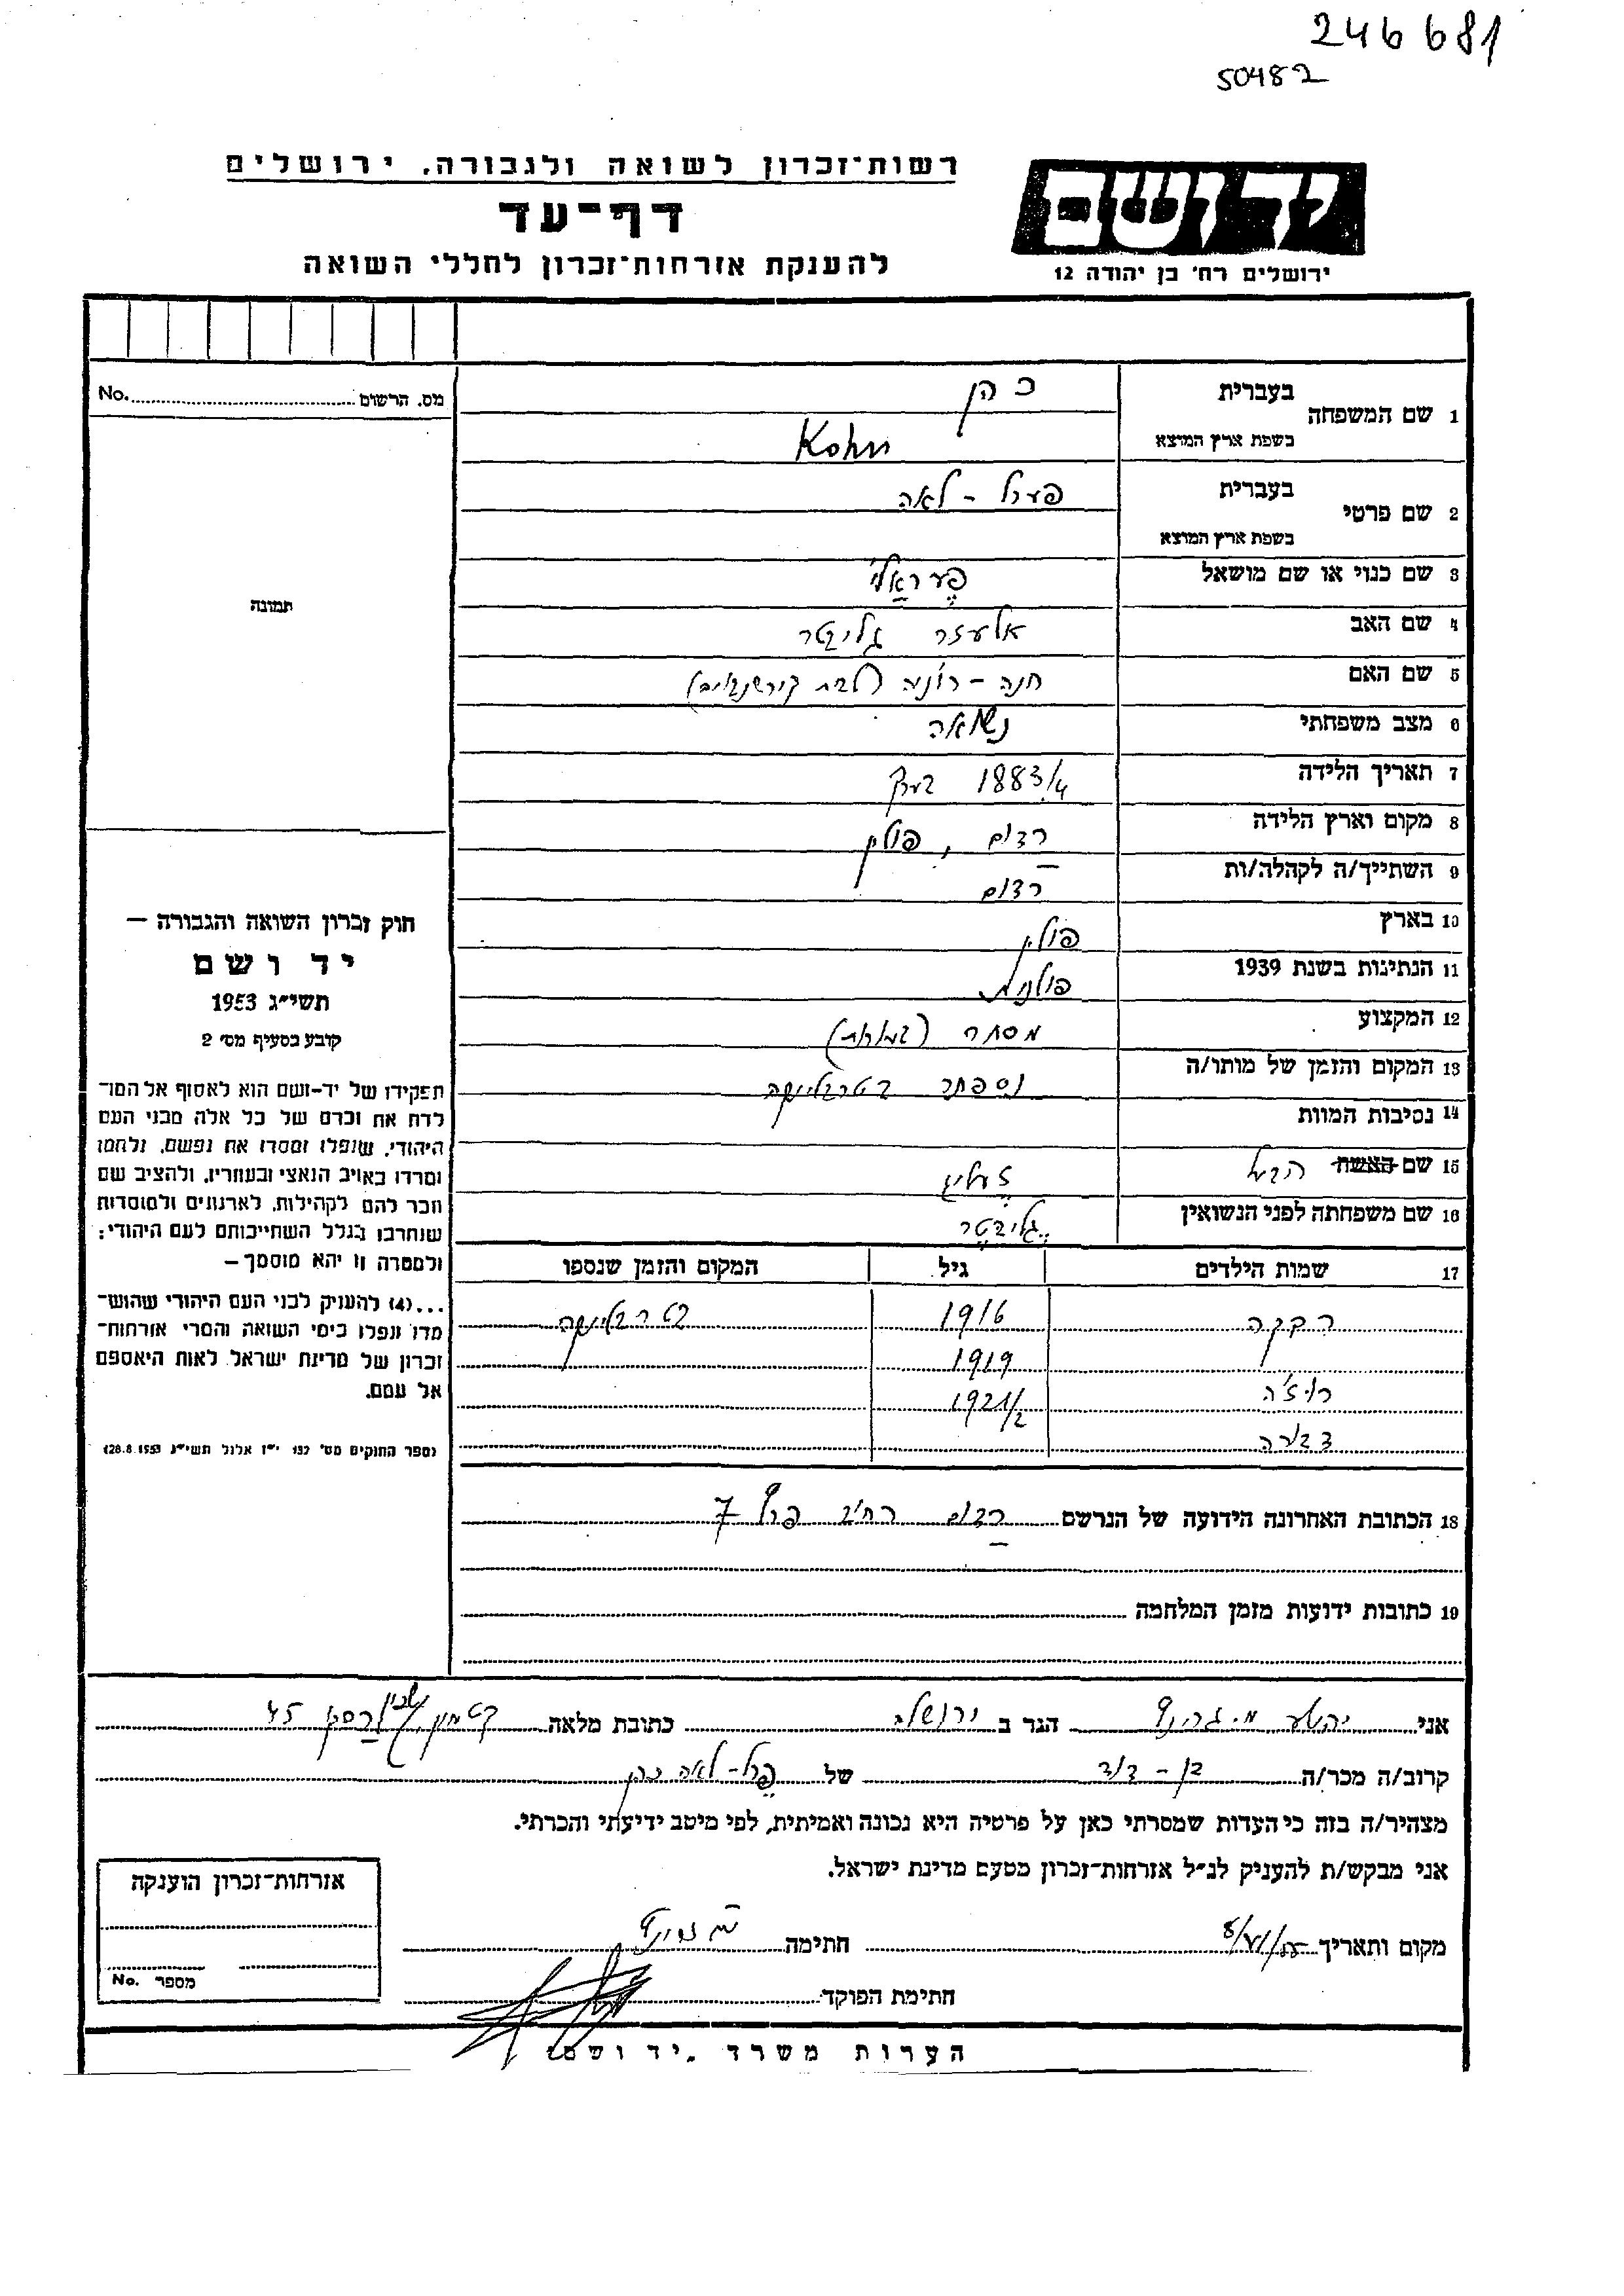 246681
50482
רשות־זכרון לשואה ולגבורה, ירושלים
יד ושם
דף־עד
להענקת אזרחות־זכרון לחללי השואה
ירושלים רח' בן יהודה 12
מס. הרשום No.
1 שם המשפחה בעברית כהן
בשפת ארץ המוצא Kohn
2 שם פרטי בעברית פערל - לאה
בשפת ארץ המוצא
תמונה
3 שם כנוי או שם מושאל
4 שם האב אלעזר
5 שם האם חנה -
6 מצב משפחתי נשואה
7 תאריך הלידה 1883/4 בערך
8 מקום וארץ הלידה רדום, פולין
9 השתייך/ה לקהלה/ות רדום
10 בארץ פולין
11 הנתינות בשנת 1939 פולנית
12 המקצוע מסחר
13 המקום והזמן של מותו/ה נספתה בטרבלינקה
14 נסיבות המוות
15 שם האשה הבעל זעליג
16 שם משפחתה לפני הנשואין
חוק זכרון השואה והגבורה –
יד ושם
תשי"ג 1953
קובע בסעיף מס' 2
תפקידו של יד-ושם הוא לאסוף אל המו־
לדת את זכרם של כל אלה מבני העם
היהודי, שנפלו ומסרו את נפשם, נלחמו
ומרדו באויב הנאצי ובעוזריו, ולהציב שם
וזכר להם לקהילות, לארגונים ולמוסדות
שנחרבו בגלל השתייכותם לעם היהודי;
ולמטרה זו יהא מוסמך –
...(4) להעניק לבני העם היהודי שהוש־
מדו ונפלו בימי השואה והמרי אזרחות־
זכרון של מדינת ישראל לאות היאספם
אל עמם.
(ספר החוקים מס' 132 י"ז אלול תשי"ג 28.8.1953)
17 שמות הילדים גיל המקום והזמן שנספו
רבקה 1916 בטרבלינקה
1919
רוזה 1921/2
דבורה
18 הכתובת האחרונה הידועה של הנרשם רדום רחוב 7
19 כתובות ידועות מזמן המלחמה
אני יהושע הגר ב ירושלים כתובת מלאה קטמון, 45
קרוב/ה מכר/ה בן - דוד של פרל - לאה כהן
מצהיר/ה בזה כי העדות שמסרתי כאן על פרטיה היא נכונה ואמיתית, לפי מיטב ידיעתי והכרתי.
אני מבקש/ת להעניק לנ"ל אזרחות־זכרון מטעם מדינת ישראל.
אזרחות־זכרון הוענקה
מספר No.
מקום ותאריך
חתימה
חתימת הפוקד
הערות משרד "יד ושם"